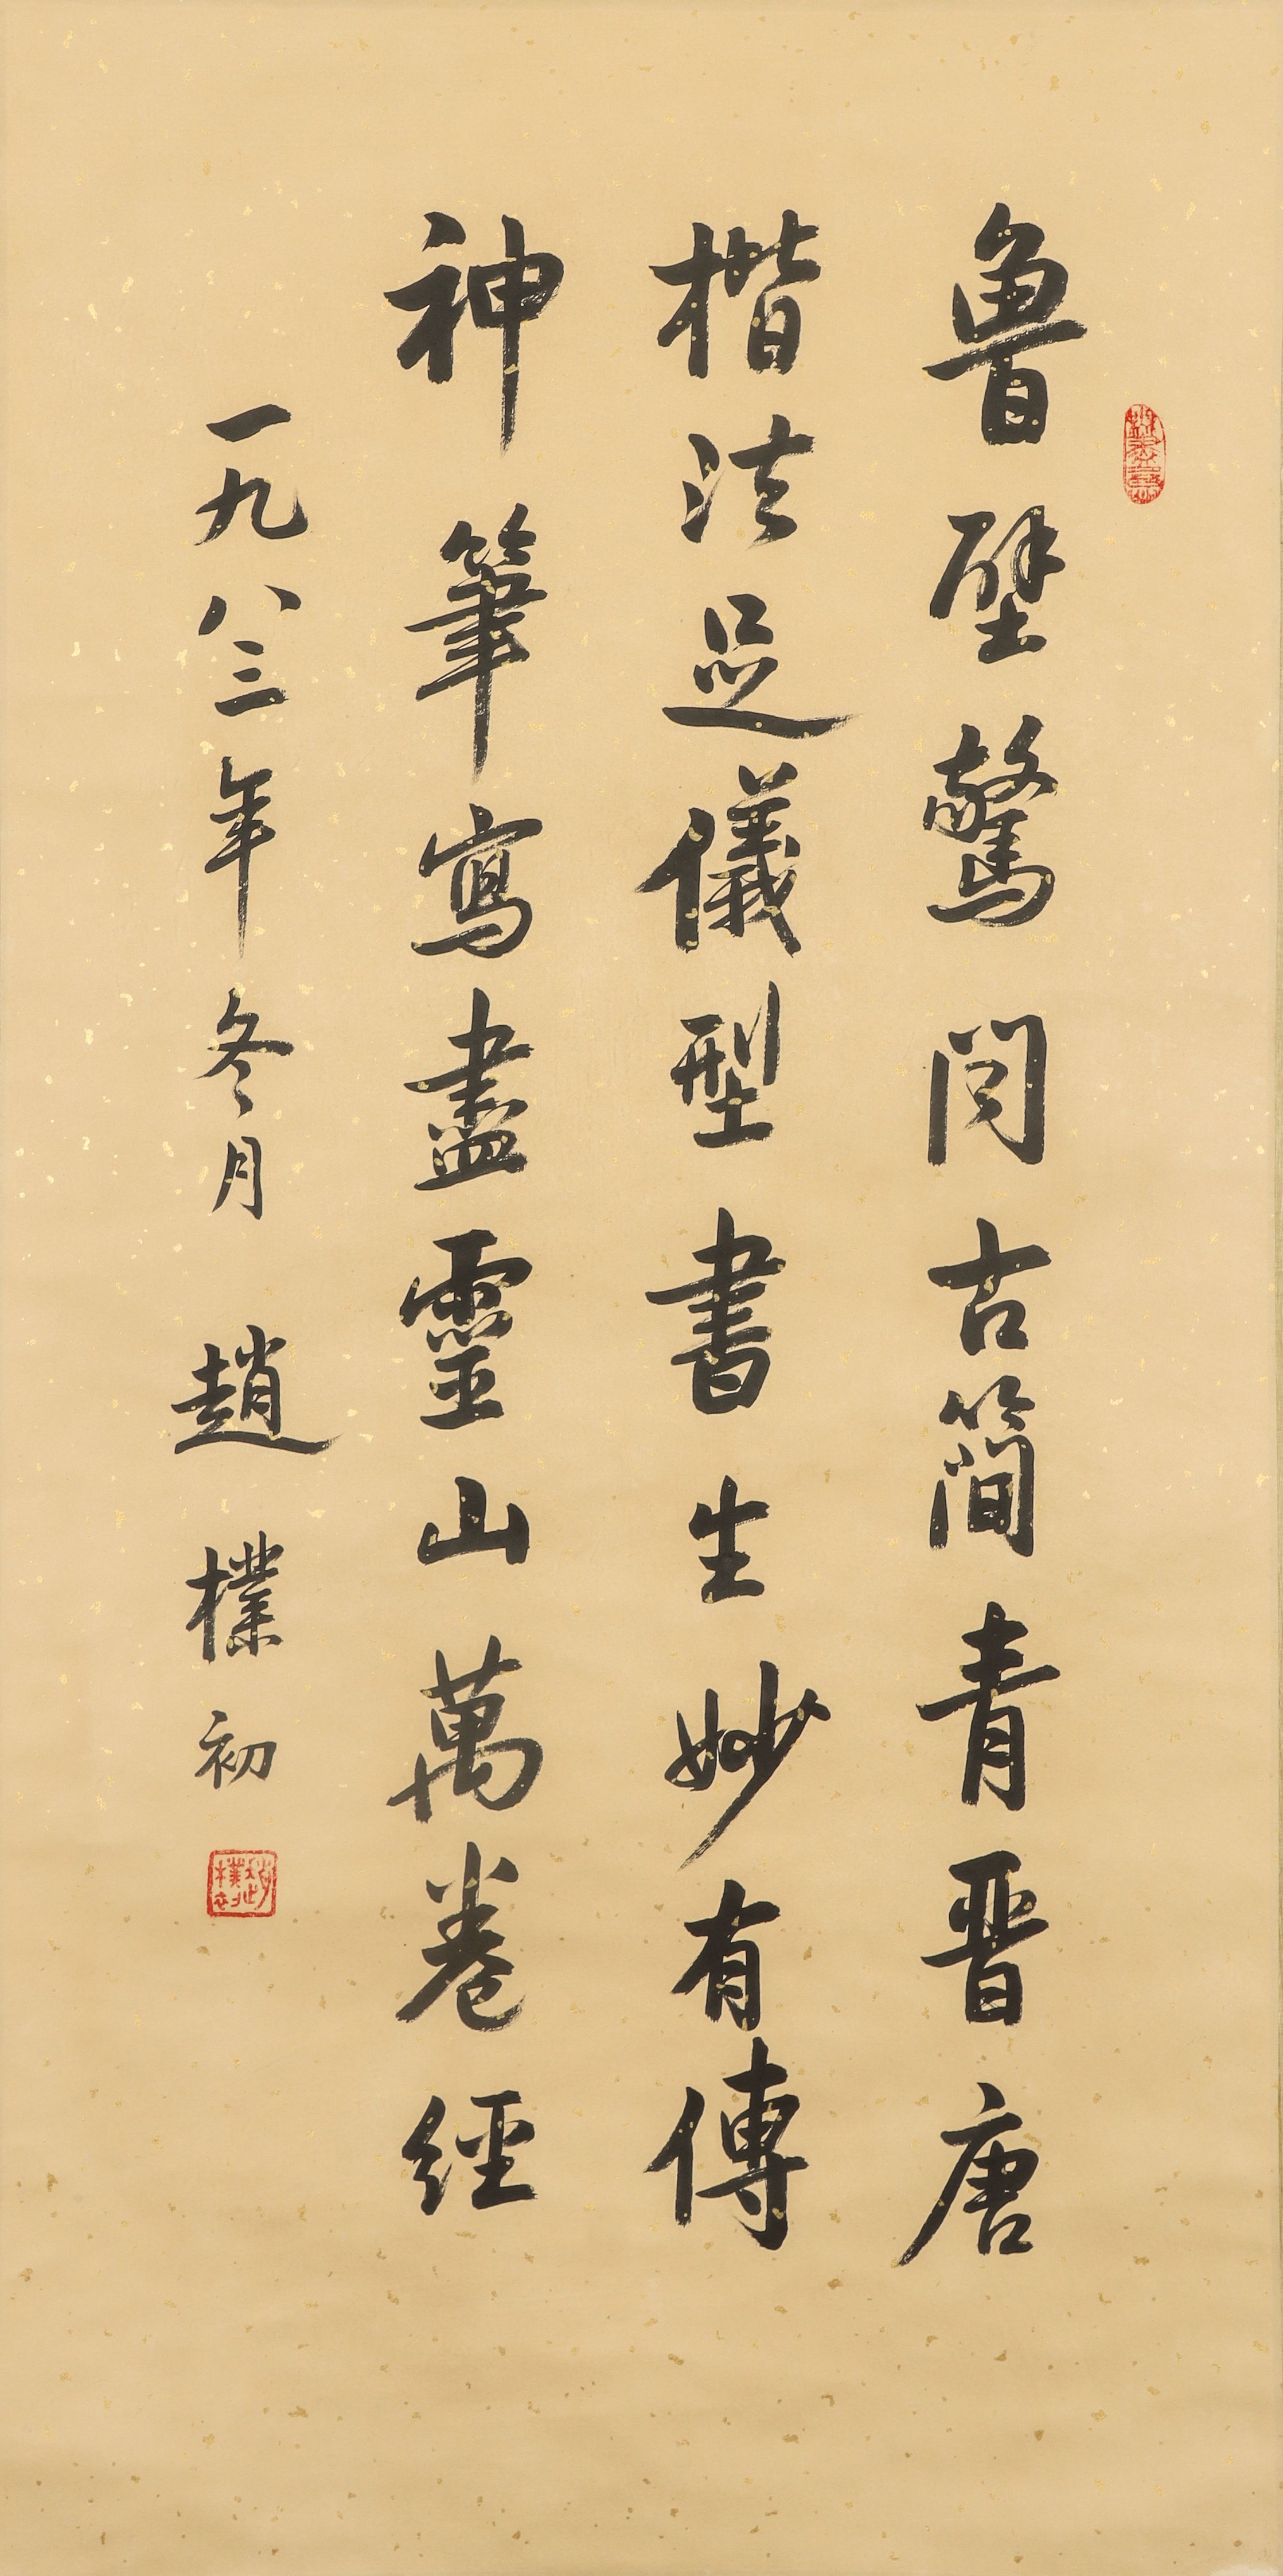 魯壁驚開古簡青晉唐
楷法足儀型書生妙有傳
神筆寫盡靈山萬卷經
一九八三年冬月 趙樸初
趙樸初